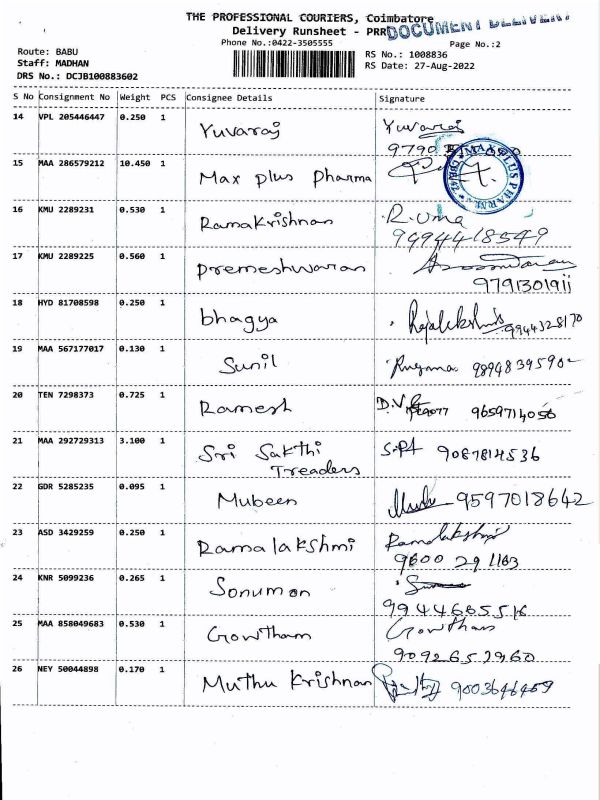 THE PROFESSIONAL COURIERS, Coimbatore
Delivery Runsheet - PRR
DOCUMENT DELIVERY
Phone No.:0422-3505555
Page No.:2
Route: BABU
Staff: MADHAN
DRS No.: DCJB100883602
RS No.: 1008836
RS Date: 27-Aug-2022
S No Consignment No Weight PCS Consignee Details Signature
14 VPL 205446447 0.250 1 Yuvaraj Yuvaraj
9790
15 MAA 286579212 10.450 1 Max plus pharma
MAX PLUS PHARMA
16 KMU 2289231 0.530 1 Ramakrishnan R. Uma
9494418549
17 KMU 2289225 0.560 1 premeshwaran
9791301911
18 HYD 81708598 0.250 1 bhagya Rajalekshmi 9944328170
19 MAA 567177017 0.130 1 Sunil 9894839590
20 TEN 7298373 0.725 1 Ramesh D.V 9659714056
21 MAA 292729313 3.100 1 Sri Sakthi Treaders 9087814536
22 GDR 5285235 0.095 1 Mubeen 9597018642
23 ASD 3429259 0.250 1 Ramalakshmi Ramalakshmi
9600 291163
24 KNR 5099236 0.265 1 Sonumon
9944665516
25 MAA 858049683 0.530 1 Gowtham Gowtham
9092652960
26 NEY 50044898 0.170 1 Muthu Krishnan 9003646459